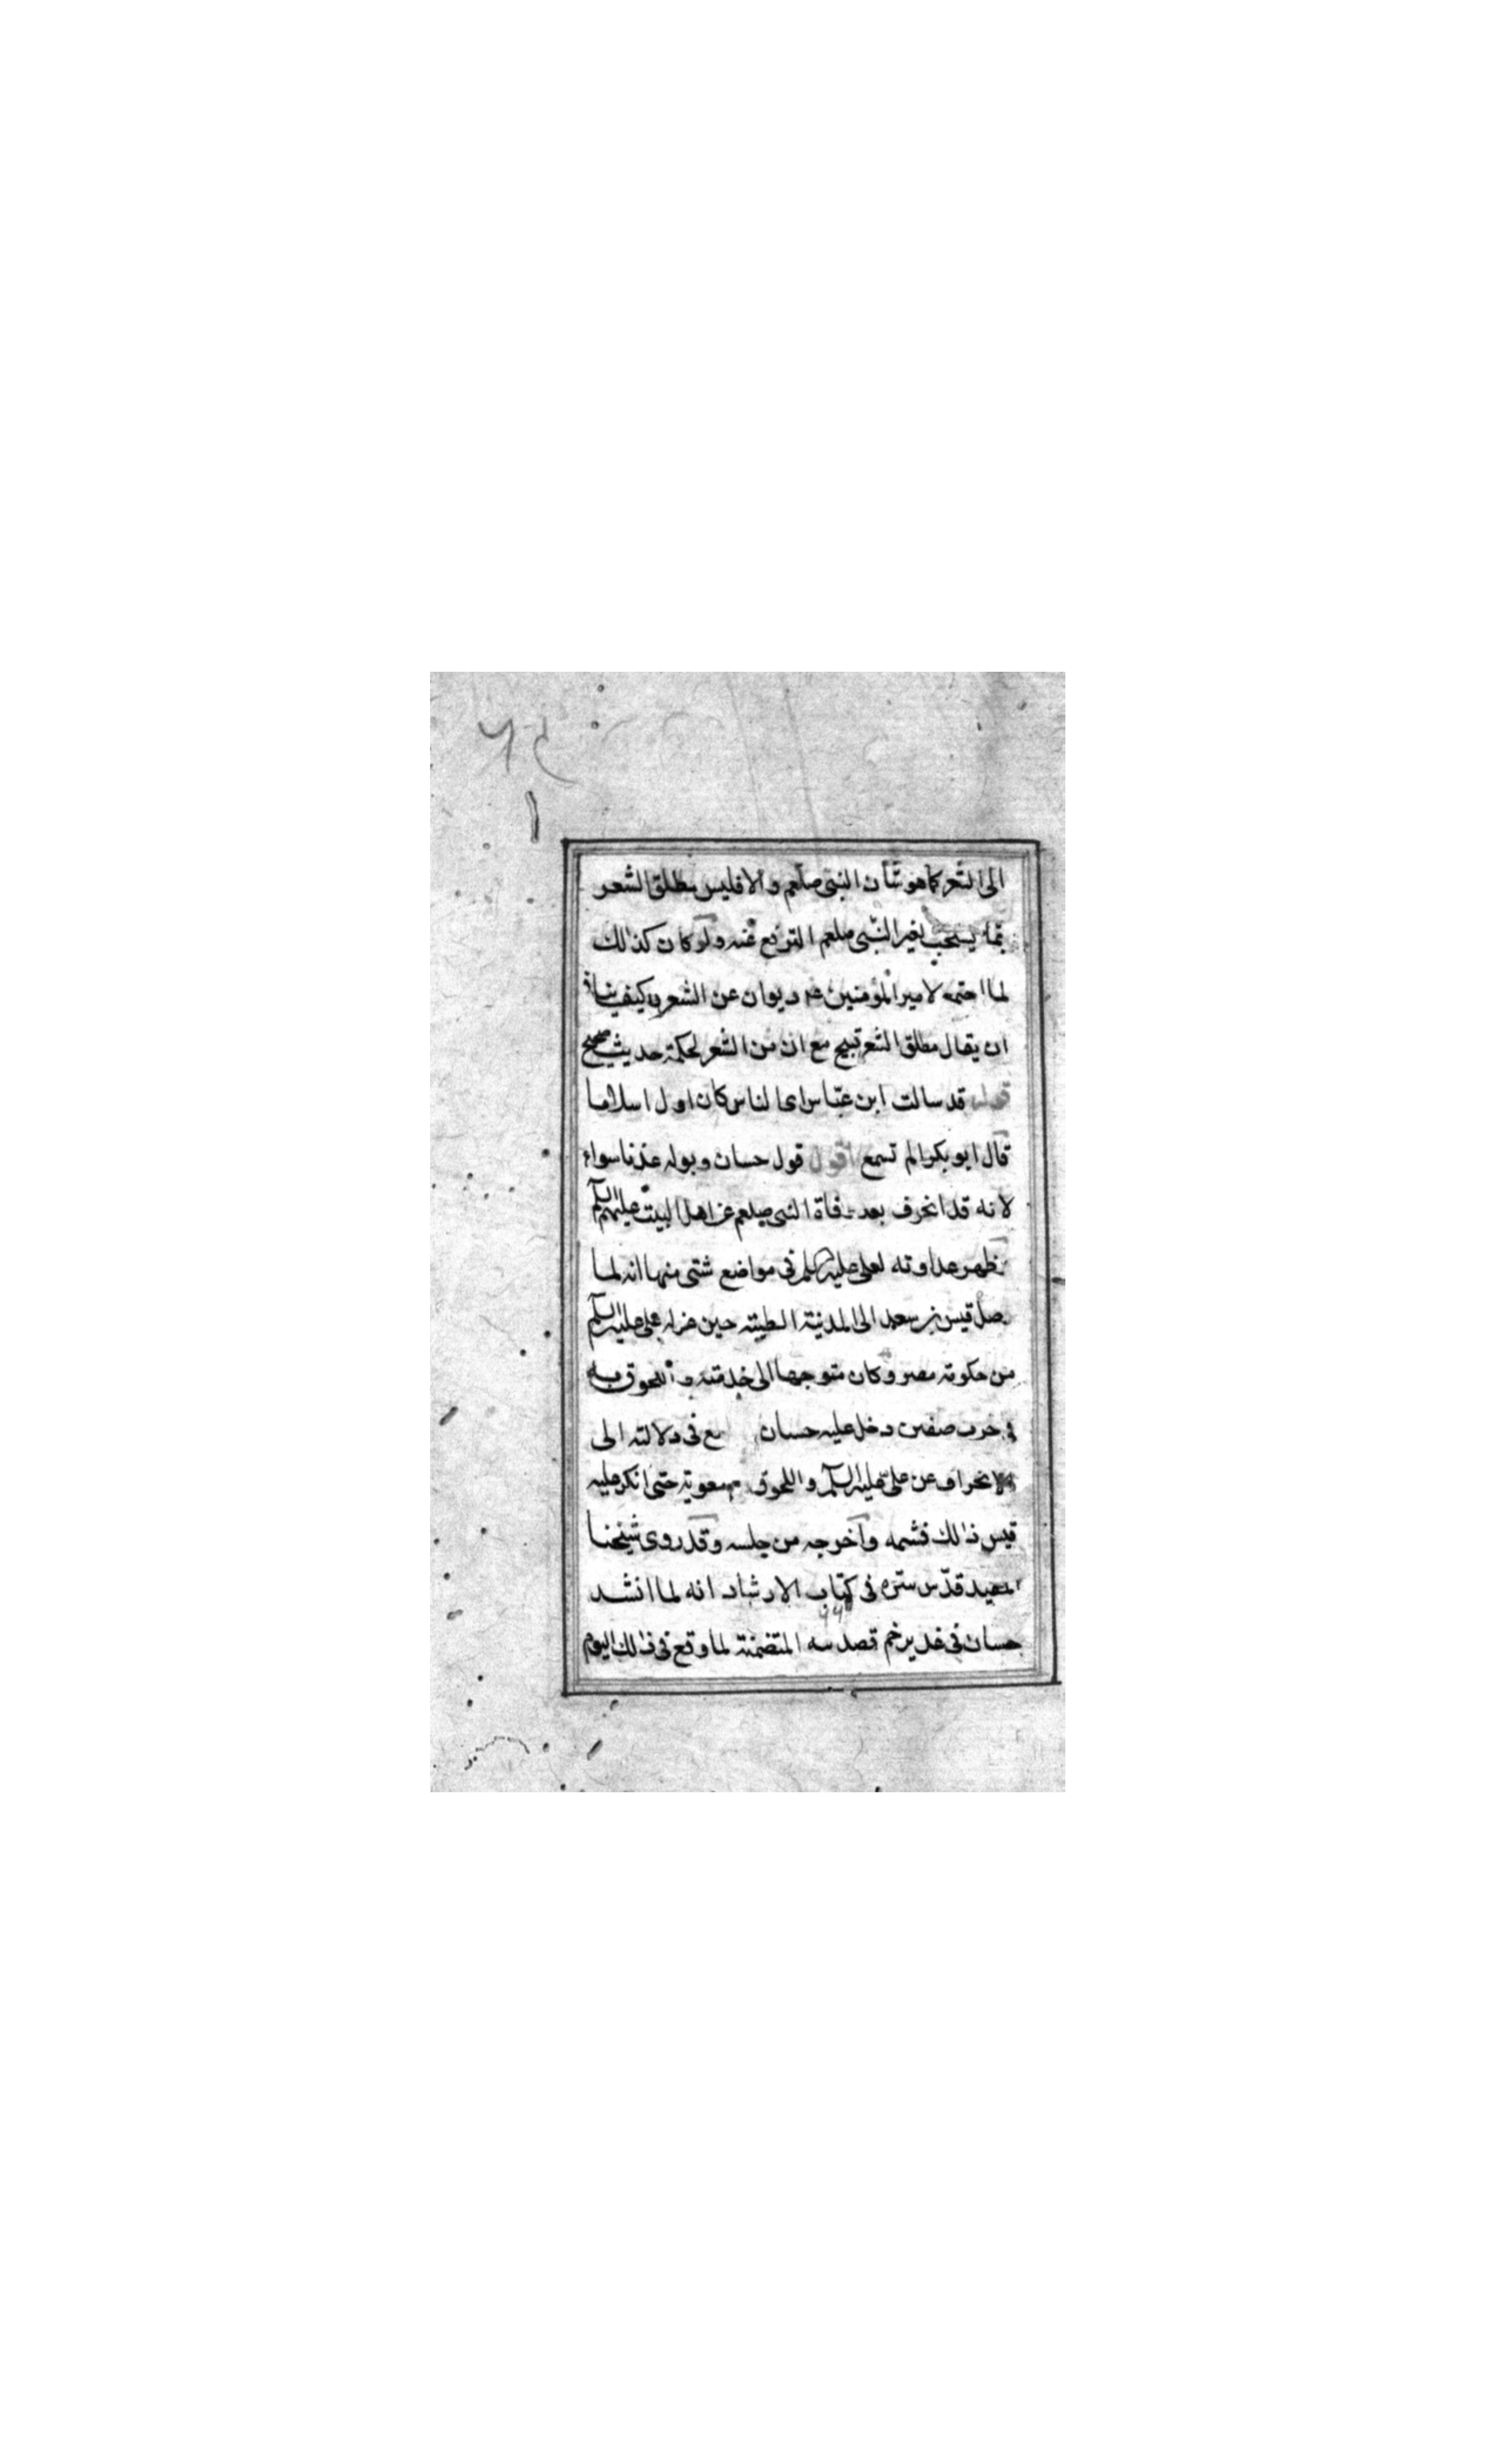 الى الشعر كما هو شأن النبى صلعم والا فليس مطلق الشعر
مما يستحب لغير النبى صلعم الترفع عنه ولو كان كذلك
لما لامير المؤمنين ديوان عن الشعر وكيف
ان يقال مطلق الشعر قبيح مع ان من الشعر لحكمة حديث صحيح
قوله قد سالت ابن عباس اى الناس كان اول اسلاما
قال ابو بكر الم تسمع اقول قول حسان وبوله عندنا سواء
لانه قد انحرف بعد وفاة النبى صلعم عن اهل البيت عليهم السلم
ظهر عداوته لعلى عليه السلم فى مواضع شتى منها انه لما
وصل قيس بن سعد الى المدينة الطيبة حين عزله على عليه السلم
من حكومة مصر وكان متوجها الى خدمته واللحوق به
فى حرب صفين دخل عليه حسان فى دلالته الى
الانحراف عن على عليه السلم واللحوق بمعوية حتى انكر عليه
قيس ذلك فشمه واخرجه من جلسه وقد روى شيخنا
المفيد قدّس سره فى كتاب الارشاد انه لما انشد
حسان فى غدير خم المتضمنة لما وقع فى ذلك اليوم